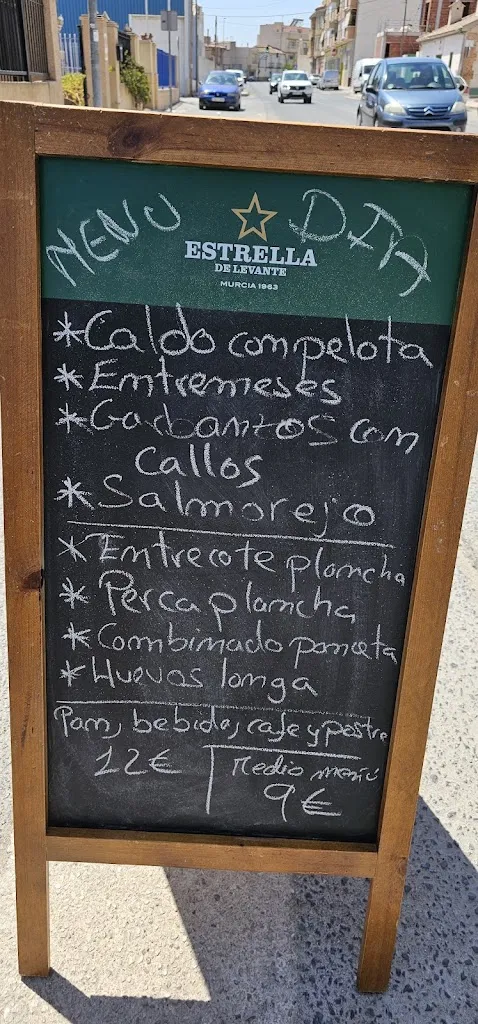 MENU DIA
ESTRELLA
DE LEVANTE
MURCIA 1963
*Caldo con pelota
*Entremeses
*Garbanzos con
callos
*Salmorejo
*Entrecote plancha
*Perca plancha
*Combinado panceta
*Huevos longa
Pan, bebida, cafe y postre
12€
Medio menú
9€